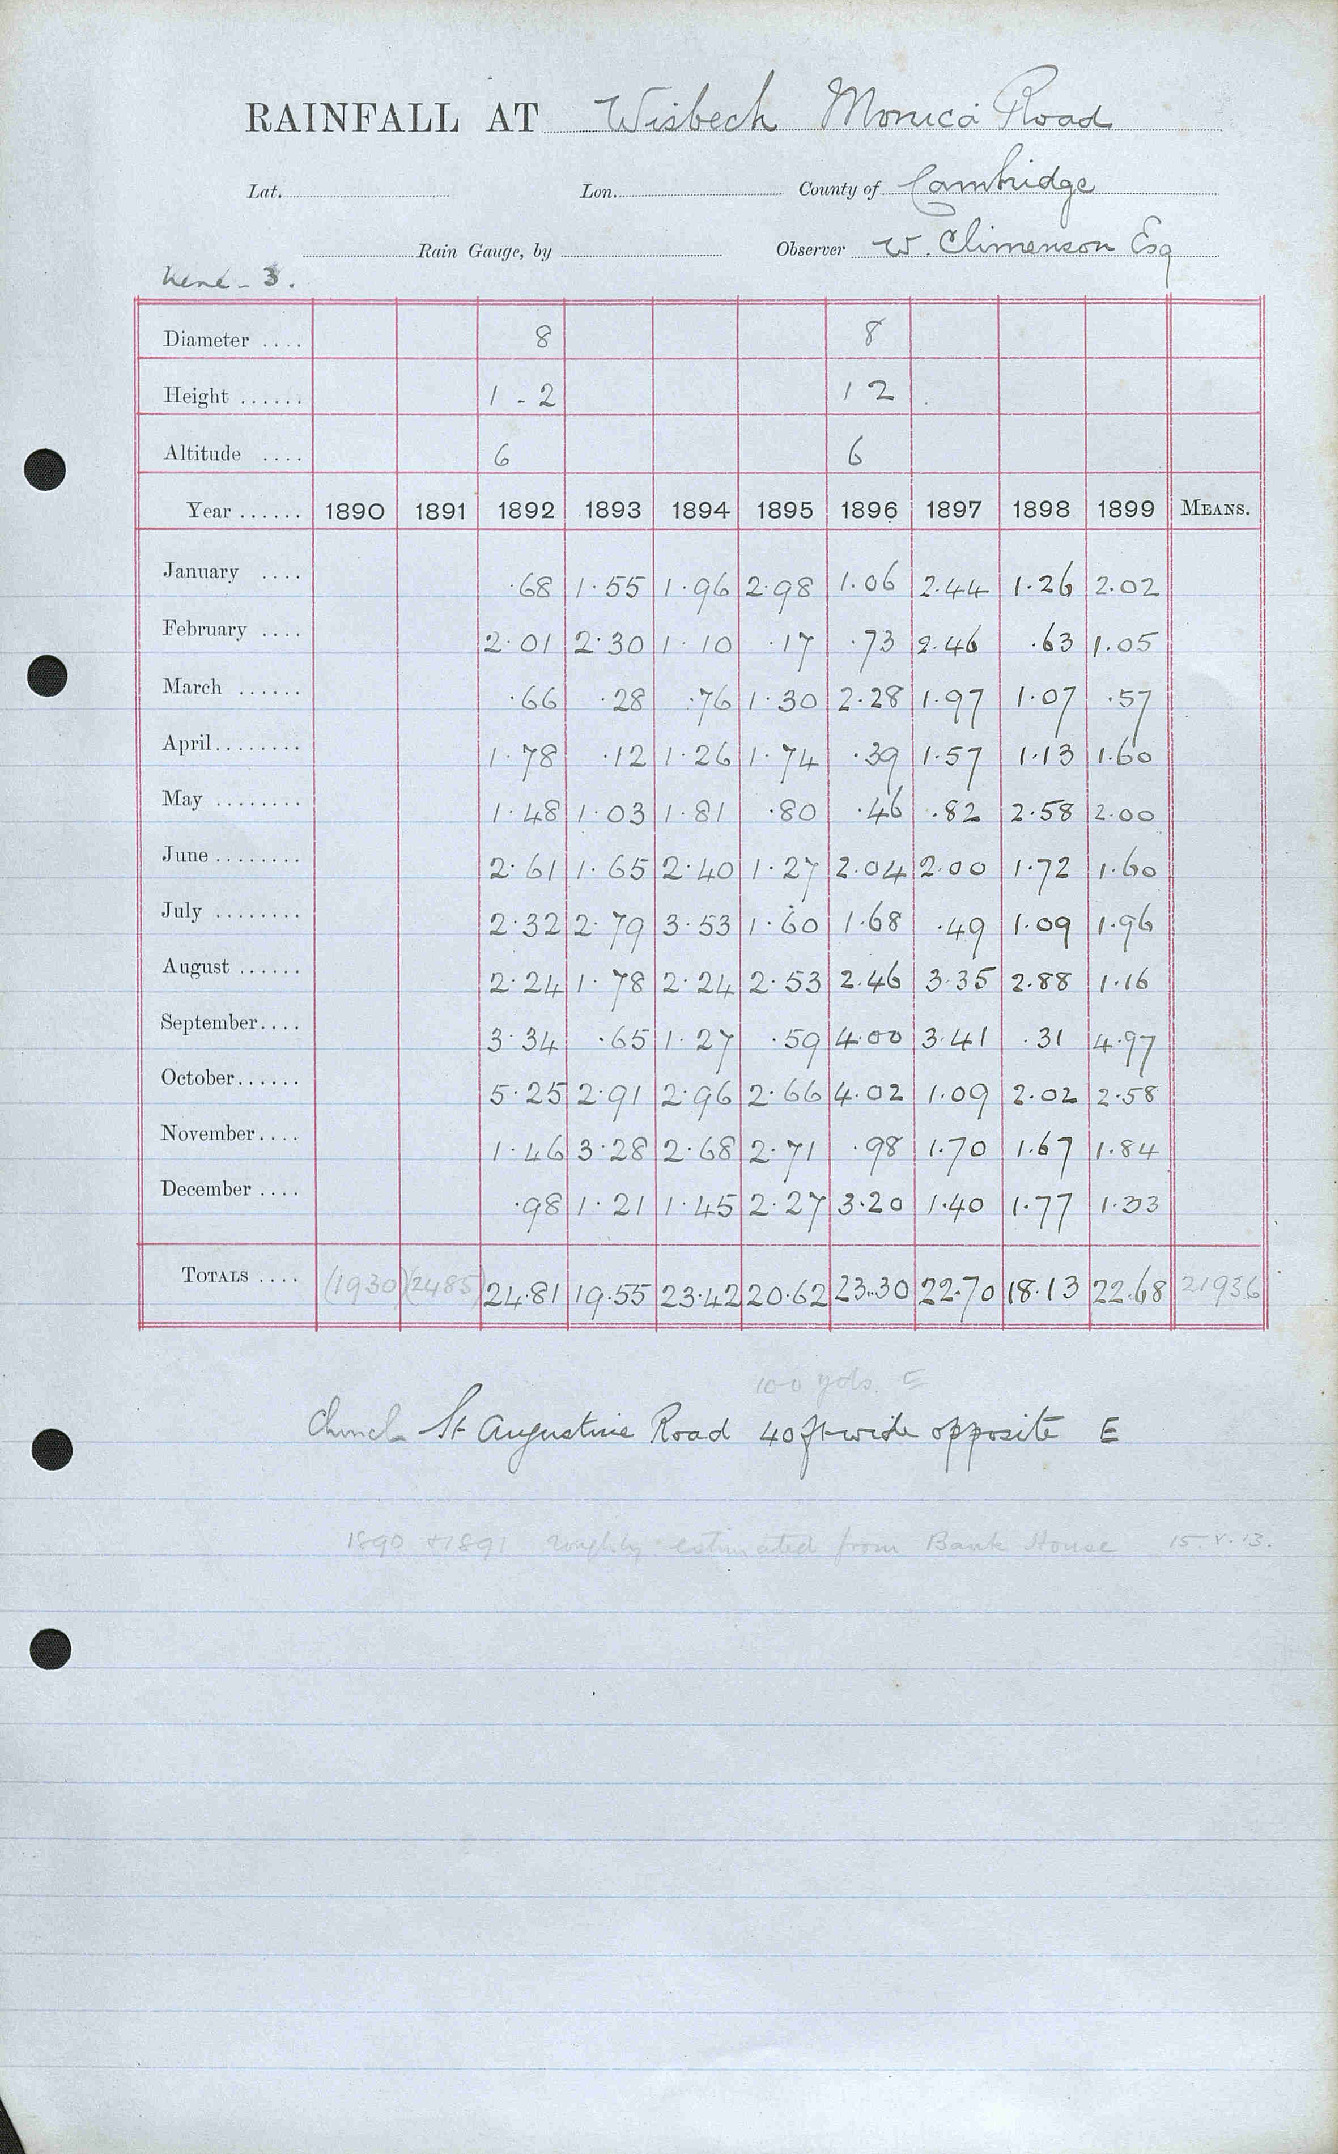 RAINFALL AT Wisbech Monica Road
Lat. Lon. County of Cambridge
Rain Gauge, by Observer W. Climenson Esq
Nene - 3.
Diameter .... 8 8
Height ...... 1 - 2 1 2
Altitude .... 6 6
Year ...... 1890 1891 1892 1893 1894 1895 1896 1897 1898 1899 MEANS.
January .... ·68 1·55 1·96 2·98 1.06 2.44 1·26 2.02
February .... 2·01 2·30 1·10 ·17 ·73 2.46 ·63 1.05
March ...... ·66 ·28 ·76 1·30 2·28 1·97 1·07 ·57
April........ 1·78 ·12 1·26 1·74 ·39 1·57 1·13 1.60
May ........ 1·48 1·03 1·81 ·80 ·46 .82 2·58 2.00
June ........ 2·61 1·65 2·40 1·27 2.04 2.00 1·72 1.60
July ........ 2·32 2·79 3·53 1·60 1·68 ·49 1.09 1.96
August ...... 2·24 1·78 2·24 2·53 2.46 3·35 2.88 1·16
September.... 3·34 ·65 1·27 ·59 4.00 3·41 ·31 4.97
October...... 5·25 2·91 2·96 2·66 4.02 1.09 2.02 2·58
November.... 1·46 3·28 2·68 2·71 ·98 1.70 1.67 1.84
December .... ·98 1·21 1·45 2·27 3·20 1·40 1·77 1·33
TOTALS .... (1930) (2485) 24·81 19·55 23·42 20·62 23.30 22·70 18·13 22.68 21936
100 yds. E
Church St Augustine Road 40ft wide opposite E
1890 & 1891 roughly estimated from Bank House 15.V.13.